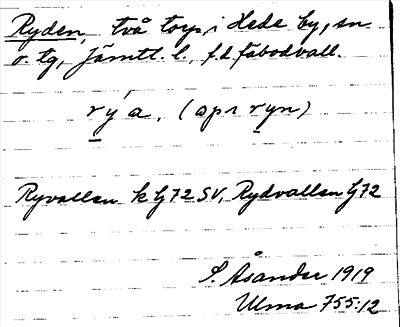 Ryden, två torp i Hede by, sn
o. tg, Jämtl. l., f.d. fäbodvall.
rýa, (apr ryn)
Ryvallen k Lj 72 SV, Rydvallen Lj 72
S. Åsander 1919
Ulma 755:12